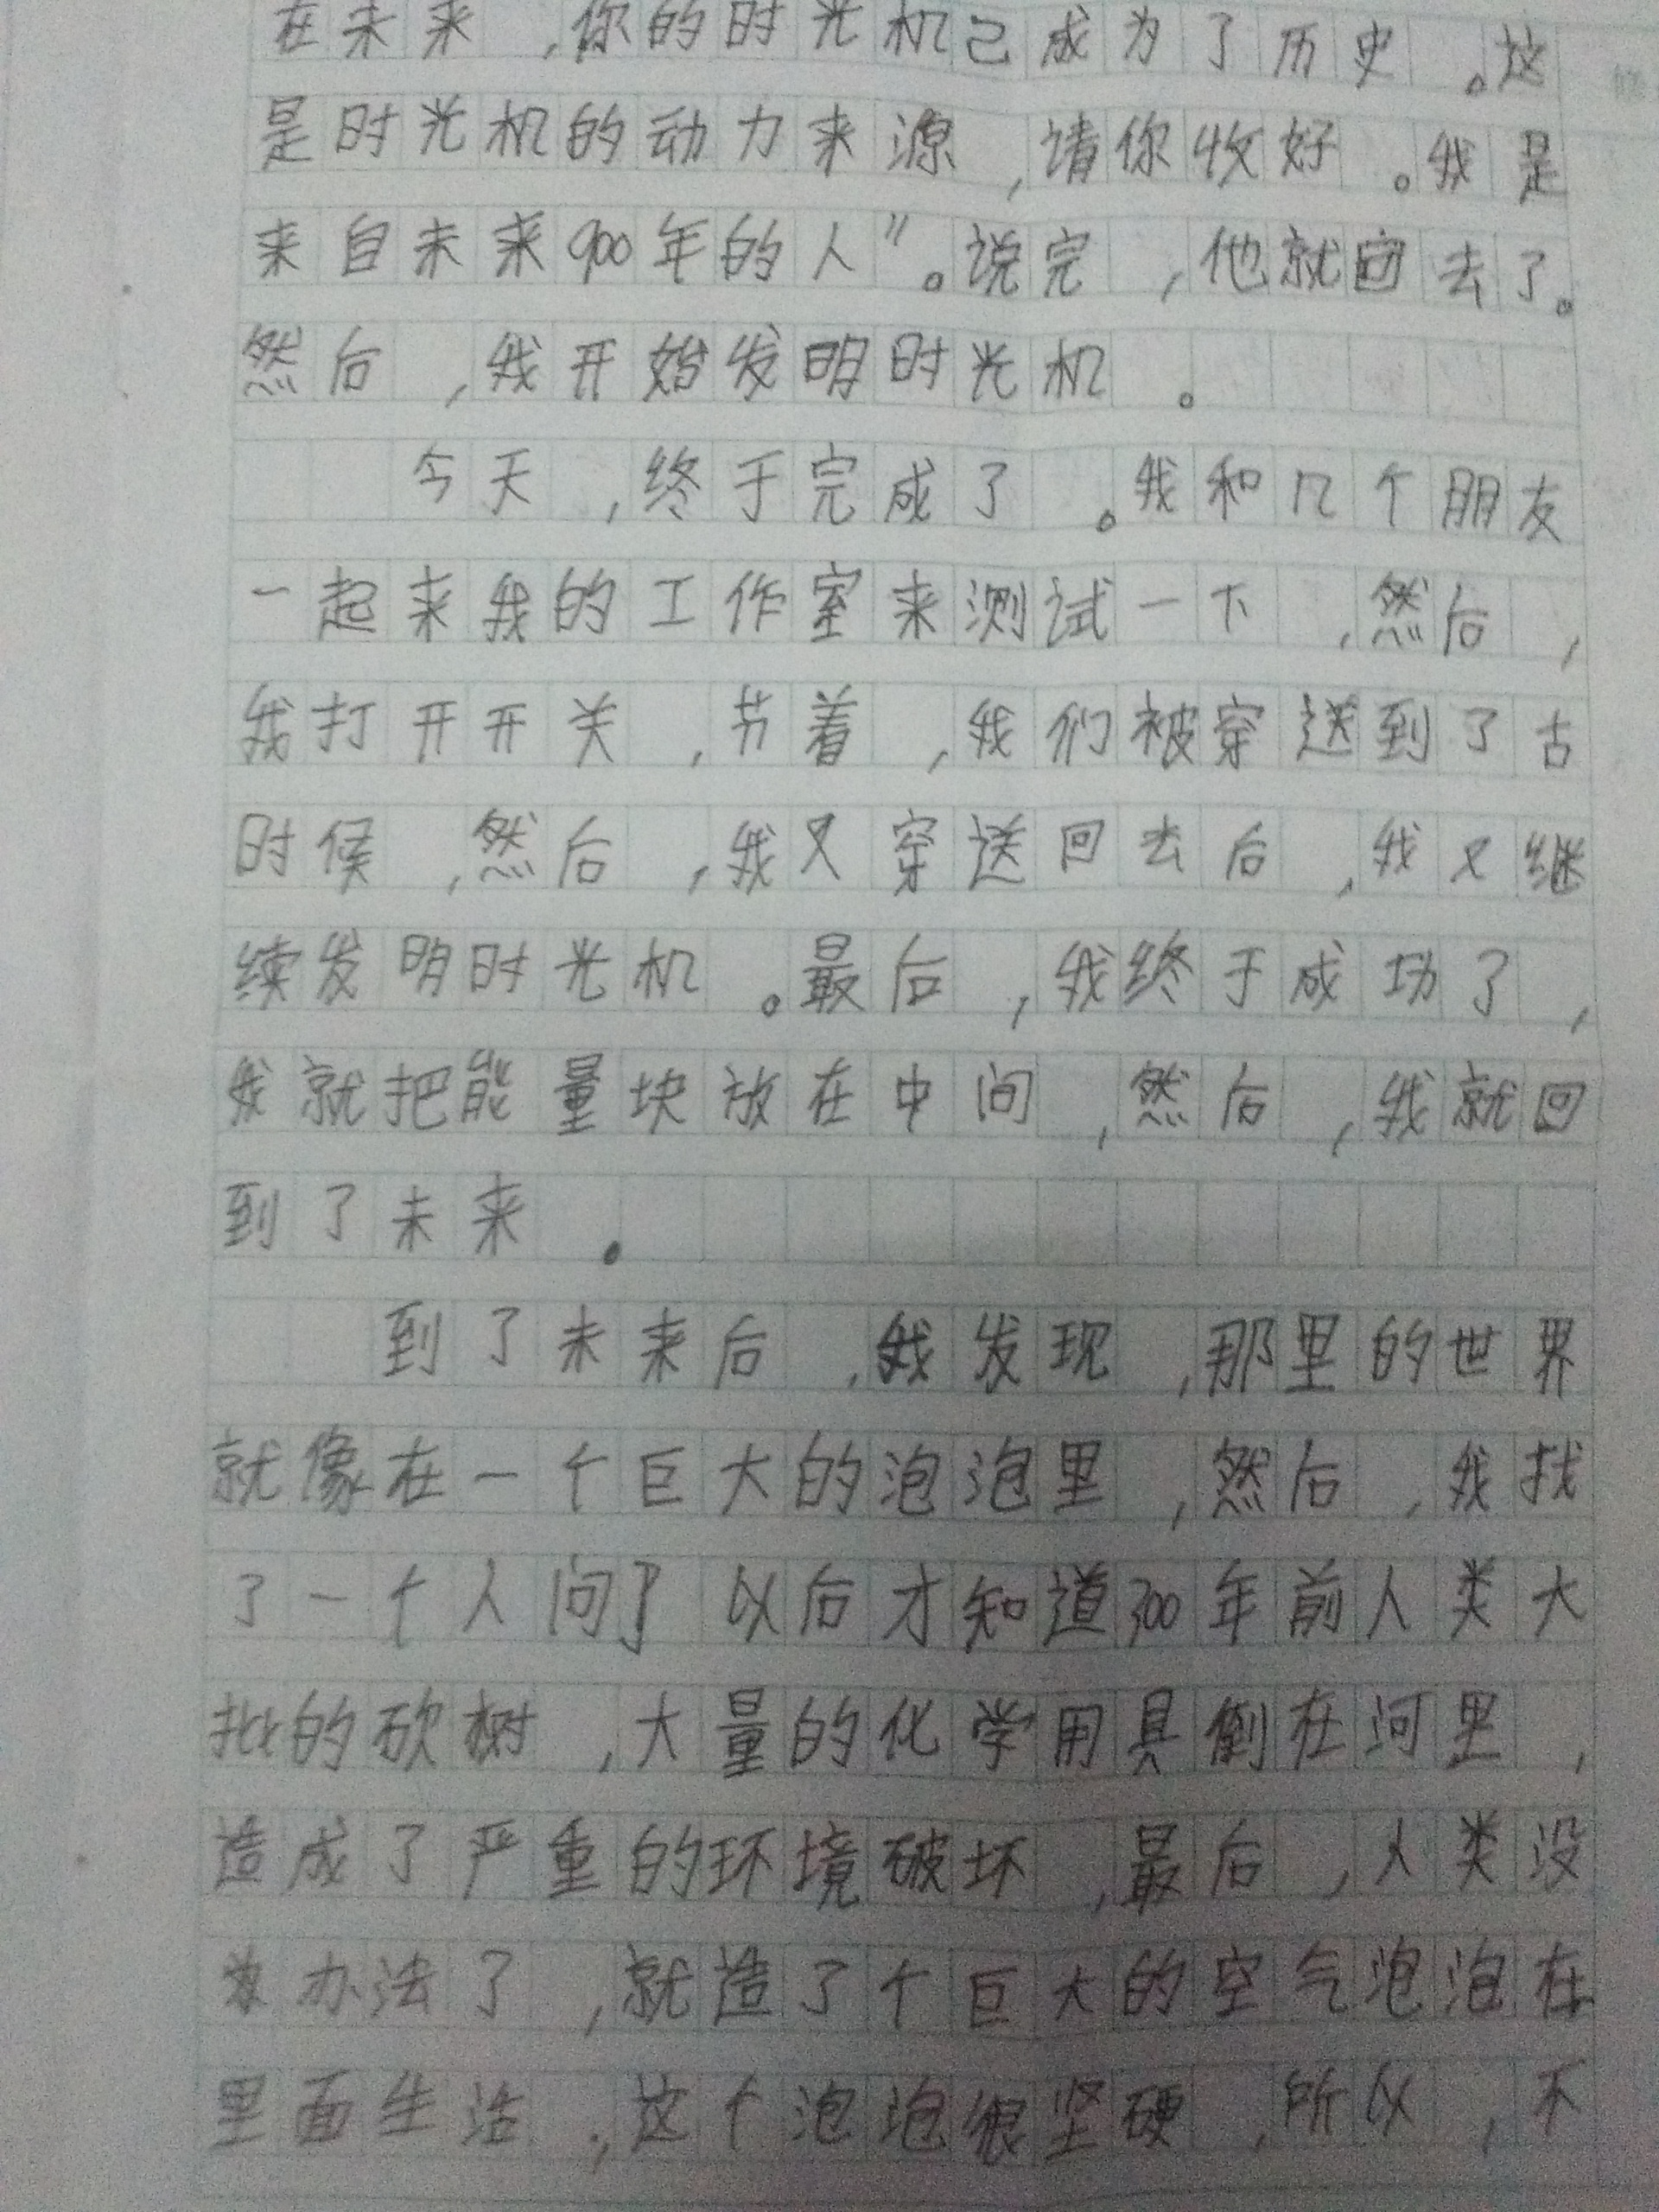 在未来,你的时光机已成为了历史。这
是时光机的动力来源,请你收好。我是
来自未来900年的人”。说完,他就回去了。
然后,我开始发明时光机。
今天,终于完成了。我和几个朋友
一起来我的工作室来测试一下,然后,
我打开开关,节着,我们被穿送到了古
时候,然后,我又穿送回去后,我又继
续发明时光机。最后,我终于成功了,
我就把能量块放在中间,然后,我就回
到了未来.
到了未来后,我发现,那里的世界
就像在一个巨大的泡泡里,然后,我找
了一个人问了以后才知道300年前人类大
批的砍树,大量的化学用具倒在河里,
造成了严重的环境破坏,最后,人类没
办法了,就造了个巨大的空气泡泡在
里面生活,这个泡泡很坚硬,所以,不